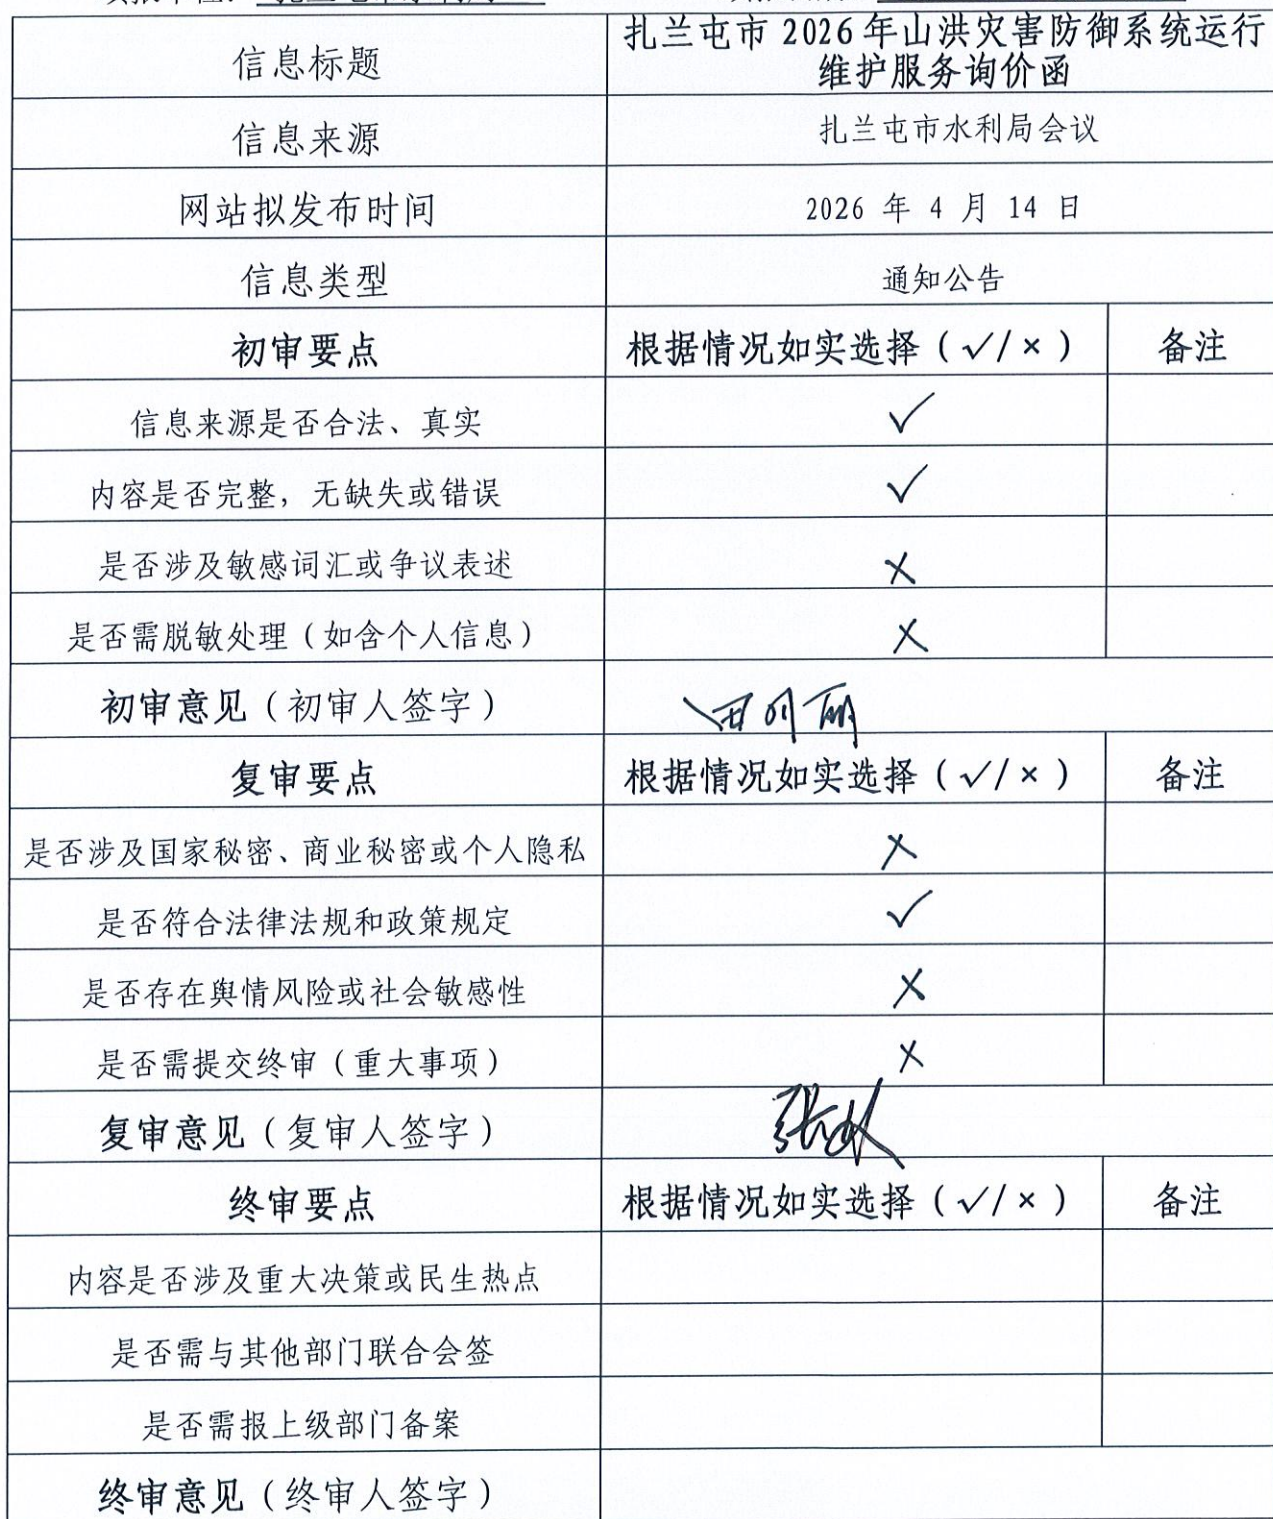 扎兰屯市 2026 年山洪灾害防御系统运行
信息标题
维护服务询价函
信息来源 扎兰屯市水利局会议
网站拟发布时间 2026 年 4 月 14 日
信息类型 通知公告
初审要点 根据情况如实选择（✓/×） 备注
信息来源是否合法、真实 ✓
内容是否完整，无缺失或错误 ✓
是否涉及敏感词汇或争议表述 ×
是否需脱敏处理（如含个人信息） ×
初审意见（初审人签字）
复审要点 根据情况如实选择（✓/×） 备注
是否涉及国家秘密、商业秘密或个人隐私 ×
是否符合法律法规和政策规定 ✓
是否存在舆情风险或社会敏感性 ×
是否需提交终审（重大事项） ×
复审意见（复审人签字）
终审要点 根据情况如实选择（✓/×） 备注
内容是否涉及重大决策或民生热点
是否需与其他部门联合会签
是否需报上级部门备案
终审意见（终审人签字）